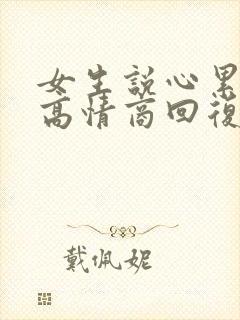 女生説心累
高情商回復
戴佩妮